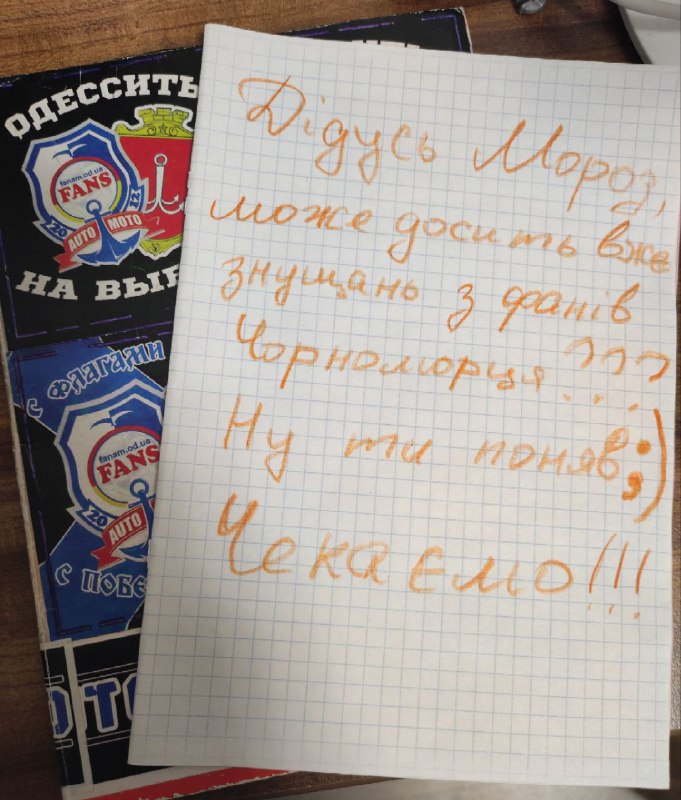 ОДЕССИТЬ
fanam.od.ua
FANS
20
AUTO
MOTO
НА ВЫЕ
С ФЛАГАМИ
fanam.od.ua
FANS
20
AUTO
С ПОБЕ
Дідусь Мороз,
може досить вже
знущань з фанів
Чорноморця???
Ну ти поняв;)
Чекаємо!!!